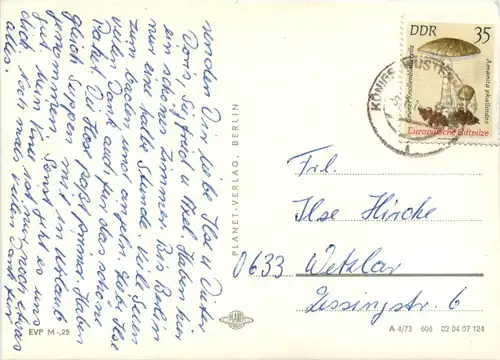 senden Dir, liebe Ilse u. Dieter
Doris, Siegfried u. Axel. Haben hier
ein schönes Zimmer. Bis Berlin
nur eine halbe Stunde. Viele Seen
zum baden und angeln. Liebe Ilse
vielen Dank auch für das schöne
Die Hose paßt prima. Haben
gleich mit in Urlaub
genommen. Sonst geht es uns
gut
dich noch mal vielen Dank für
alles.
PLANET-VERLAG, BERLIN
DDR 35
Amanita phalloides
Grüner Knollenblätterpilz
Europäische Giftpilze
KÖNIGS WUSTERH
Frl.
Ilse Hircke
0633 Wetzlar
Lessingstr. 6
PLANET
EVP M -,25
A 4/73 606 02 04 07 124